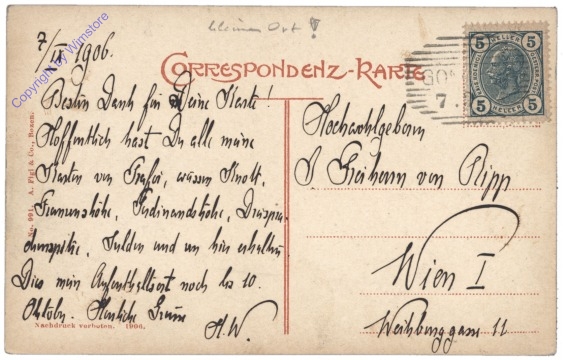 kleiner Ort!
7/IX 1906.
CORRESPONDENZ-KARTE
5 HELLER 5
5 HELLER 5
GO
7.
Copyright by Wimstore
Besten Dank für Deine Karte!
Hoffentlich hast Du alle meine
Karten von Trafoi, Knott,
Franzenshöhe, Ferdinandshöhe, Dreispra-
chenspitze, Sulden und von hier erhalten
Dies mein Aufenthaltsort noch bis 10.
Oktober. Herzliche Grüsse
H.W.
Hochwohlgeboren
Freiherrn von Pipp
Wien I
Weihburggasse 11
No. 991. A. Pigl & Co., Bozen.
Nachdruck verboten. 1906.